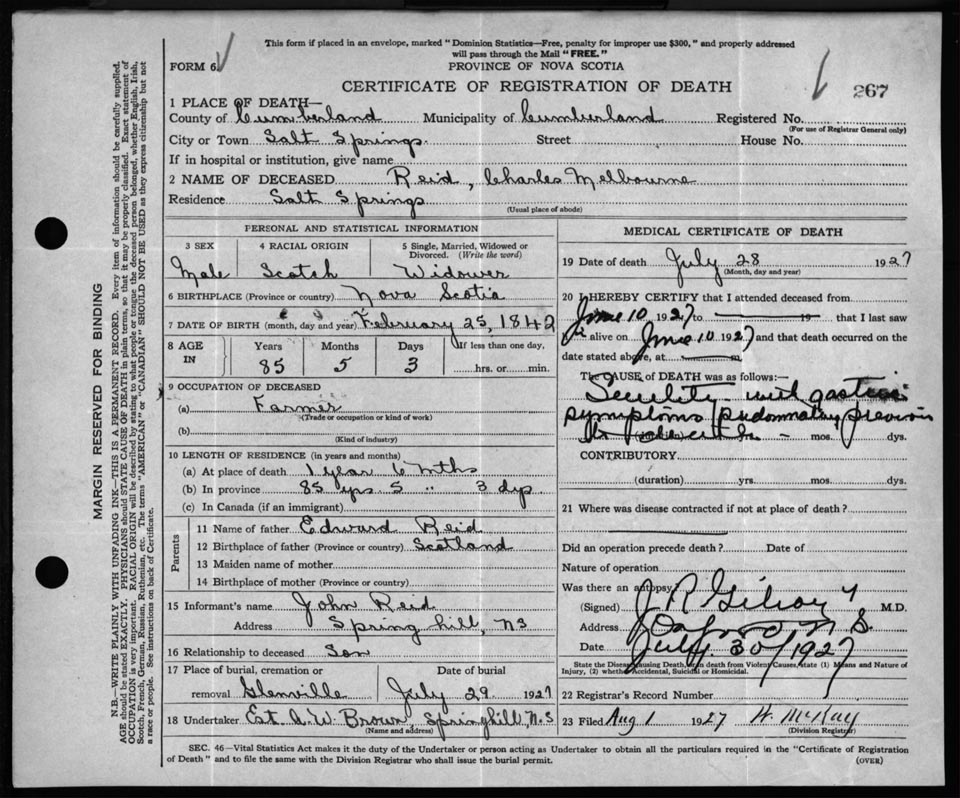 This form if placed in an envelope, marked "Dominion Statistics—Free, penalty for improper use $300," and properly addressed
will pass through the Mail "FREE."
FORM 6.
PROVINCE OF NOVA SCOTIA
CERTIFICATE OF REGISTRATION OF DEATH
267
1 PLACE OF DEATH—
County of Cumberland Municipality of Cumberland Registered No.
(For use of Registrar General only)
City or Town Salt Springs. Street House No.
If in hospital or institution, give name
2 NAME OF DECEASED Reid, Charles Melbourne
Residence Salt Springs
(Usual place of abode)
PERSONAL AND STATISTICAL INFORMATION
3 SEX 4 RACIAL ORIGIN 5 Single, Married, Widowed or Divorced. (Write the word)
Male Scotch Widower
6 BIRTHPLACE (Province or country) Nova Scotia
7 DATE OF BIRTH (month, day and year) February 25, 1842
8 AGE IN Years Months Days If less than one day,
85 5 3 hrs. or min.
9 OCCUPATION OF DECEASED
(a) Farmer
(Trade or occupation or kind of work)
(b)
(Kind of industry)
10 LENGTH OF RESIDENCE (in years and months)
(a) At place of death 1 year 6 mths
(b) In province 85 yrs 5 " 3 dys.
(c) In Canada (if an immigrant)
Parents
11 Name of father Edward Reid
12 Birthplace of father (Province or country) Scotland
13 Maiden name of mother
14 Birthplace of mother (Province or country)
15 Informant's name John Reid
Address Spring hill, NS
16 Relationship to deceased Son
17 Place of burial, cremation or Date of burial
removal Glenville July 29 1927
18 Undertaker Est. A.W. Brown, Springhill, N.S
(Name and address)
MEDICAL CERTIFICATE OF DEATH
19 Date of death July 28 1927
(Month, day and year)
20 I HEREBY CERTIFY that I attended deceased from
June 10 1927 to 19 that I last saw
alive on June 10 1927 and that death occurred on the
date stated above, at
The CAUSE of DEATH was as follows:—
Senility with gastric
symptoms predominating previous
to mos. dys.
CONTRIBUTORY
(duration) yrs. mos. dys.
21 Where was disease contracted if not at place of death?
Did an operation precede death? Date of
Nature of operation
Was there an autopsy
(Signed) J R Gilroy M.D.
Address Oxford N S.
Date July 30/1927
State the Disease Causing Death, or in death from Violent Causes, state (1) Means and Nature of
Injury, (2) whether Accidental, Suicidal or Homicidal.
22 Registrar's Record Number
23 Filed Aug 1 1927 H. McKay
(Division Registrar)
SEC. 46—Vital Statistics Act makes it the duty of the Undertaker or person acting as Undertaker to obtain all the particulars required in the "Certificate of Registration
of Death" and to file the same with the Division Registrar who shall issue the burial permit.
(OVER)
MARGIN RESERVED FOR BINDING
N.B.—WRITE PLAINLY WITH UNFADING INK—THIS IS A PERMANENT RECORD. Every item of information should be carefully supplied.
AGE should be stated EXACTLY. PHYSICIANS should STATE CAUSE OF DEATH in plain terms, so that it may be properly classified. Exact statement of
OCCUPATION is very important. RACIAL ORIGIN will be described by stating to what people or tongue the deceased person belonged, whether English, Irish,
Scotch, French, German, Russian, Ruthenian, etc. The terms "AMERICAN" or "CANADIAN" SHOULD NOT BE USED as they express citizenship but not
a race or people. See instructions on back of Certificate.